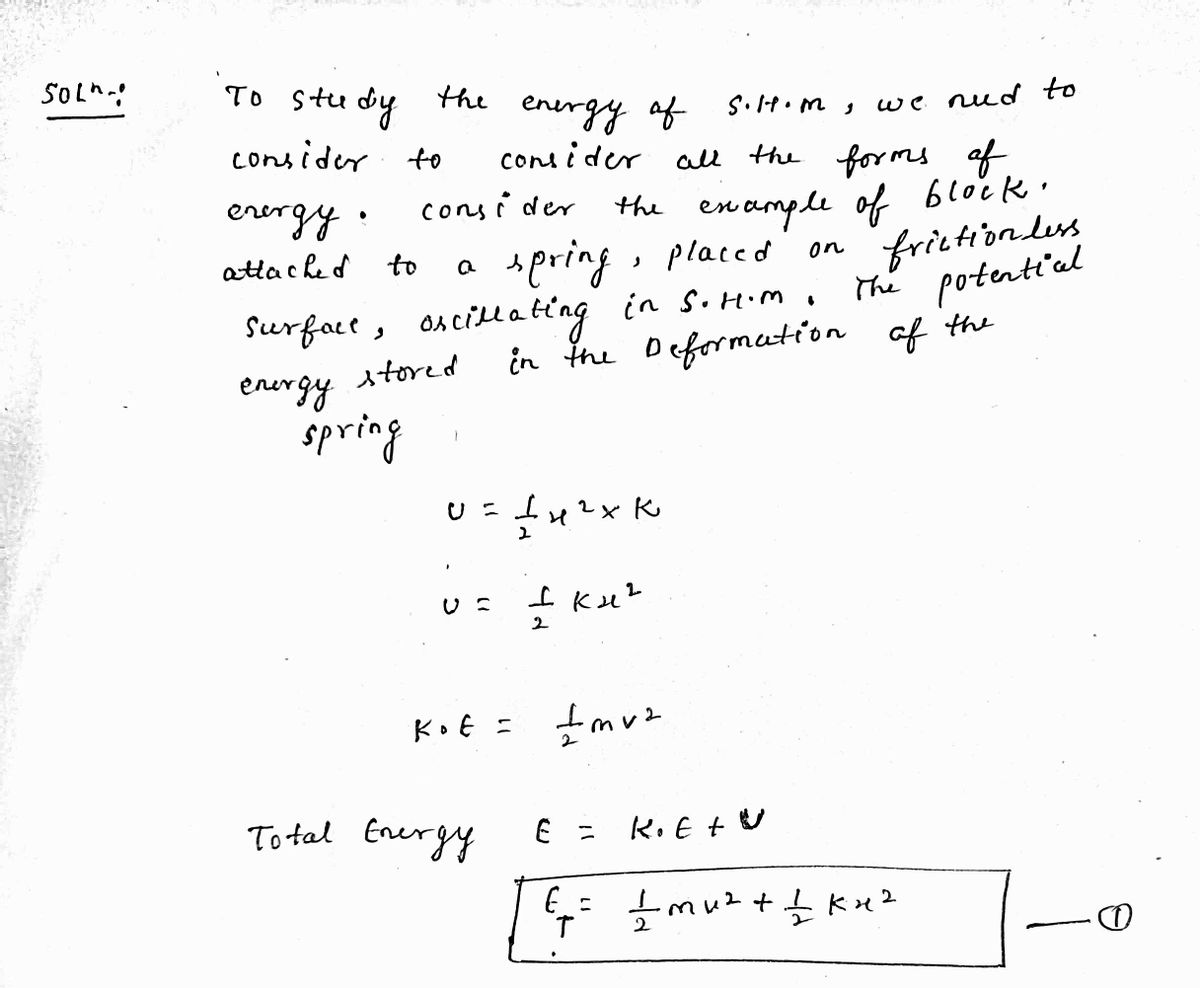 Soln:-
To study the energy of S.H.M, we need to
consider to consider all the forms of
energy. consider the example of block.
attached to a spring, placed on frictionless
surface, oscillating in S.H.M. The potential
energy stored in the Deformation of the
spring
U = 1/2 x² × K
U = 1/2 Kx²
K.E = 1/2 mv²
Total Energy E = K.E + U
E_T = 1/2 mv² + 1/2 Kx² — ①